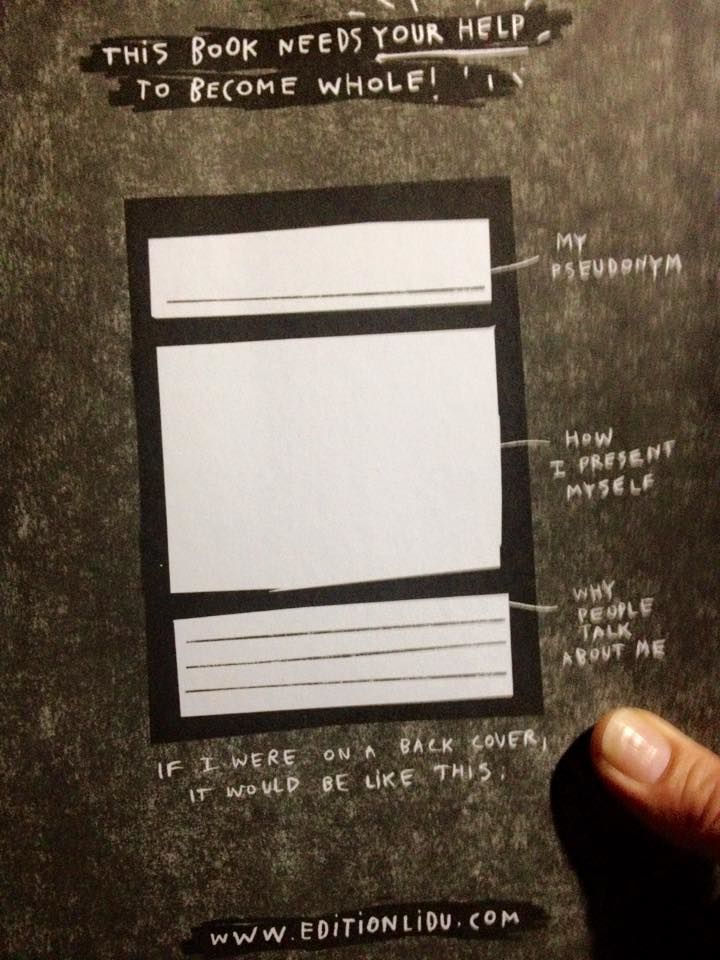 THIS BOOK NEEDS YOUR HELP
TO BECOME WHOLE!
MY
PSEUDONYM
HOW
I PRESENT
MYSELF
WHY
PEOPLE
TALK
ABOUT ME
IF I WERE ON A BACK COVER,
IT WOULD BE LIKE THIS.
WWW.EDITIONLIDU.COM